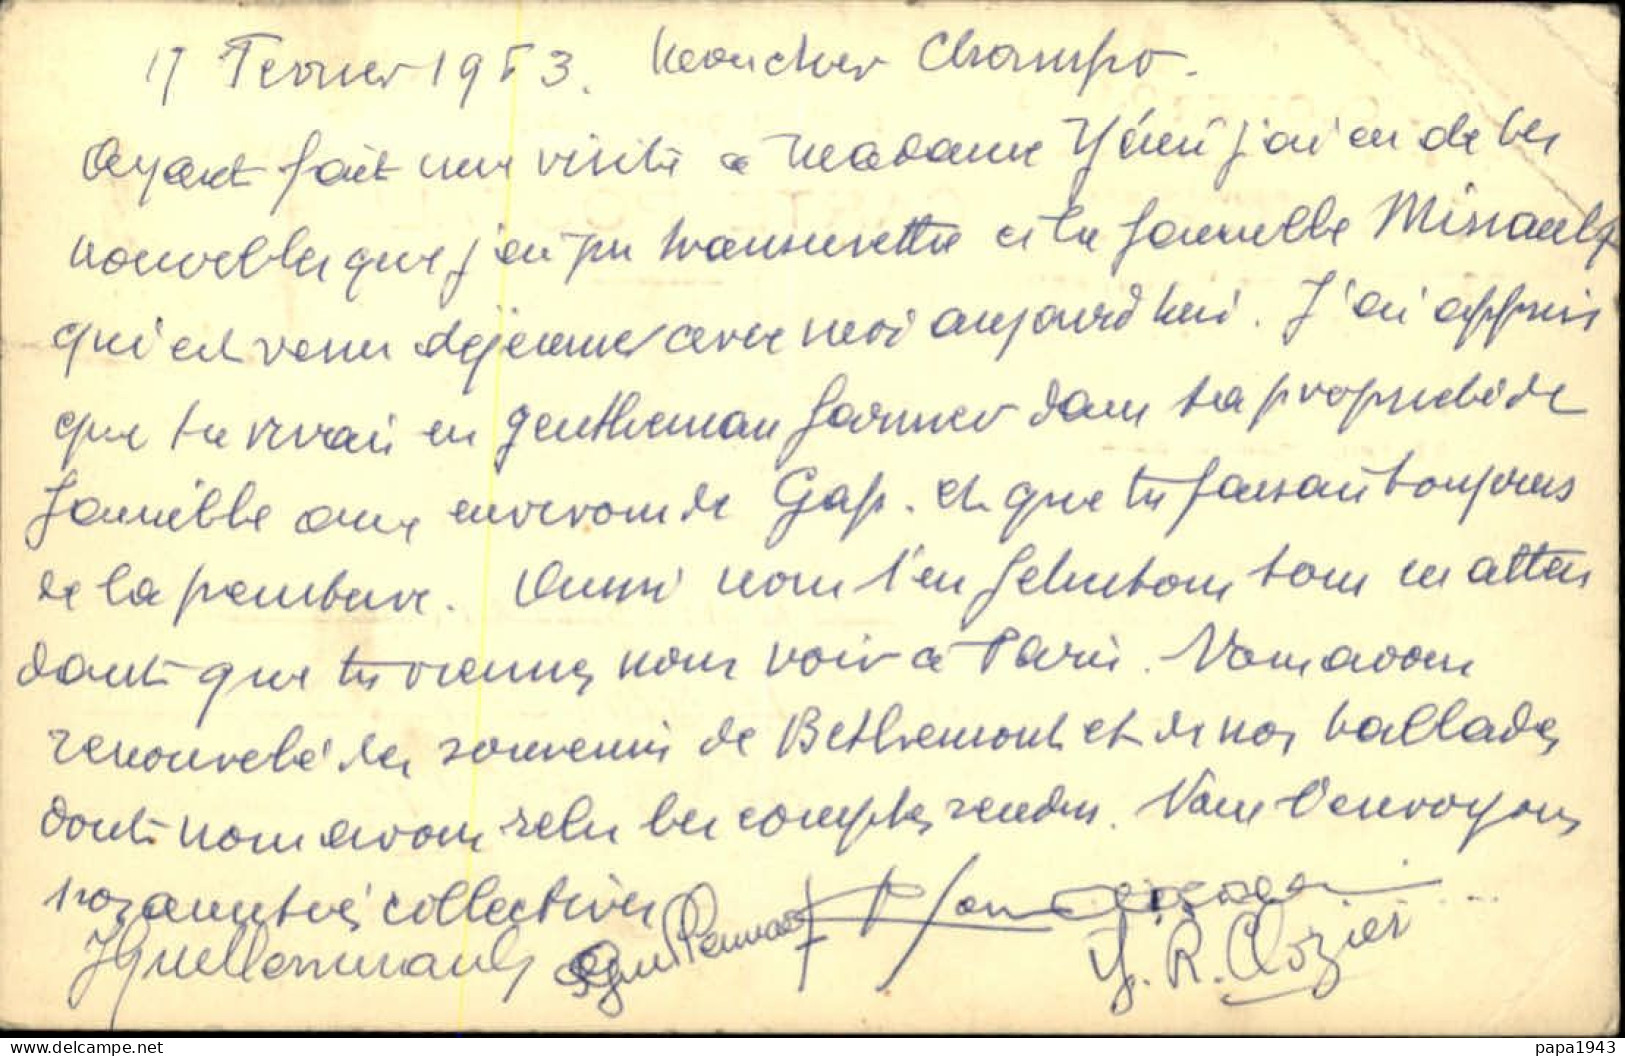 17 Fevrier 1953. Mon cher Champo.
Ayant fait une visite à Madame j'ai eu de tes
nouvelles que j'ai pu transmettre à la famille
qui est venu dejeuner avec moi aujourd'hui. J'ai appris
que tu vivais en gentleman farmer dans ta propriété de
famille aux environ de Gap. et que tu faisait toujours
de la peinture. Aussi nous t'en felicitons tous en atten
dant que tu viennes nous voir à Paris. Nous avons
renouvelé des souvenirs de Bethemont et de nos ballades
dont nous avons relu les comptes rendus. Nous t'envoyons
nos amitiés collectives
R. Clozier
papa1943